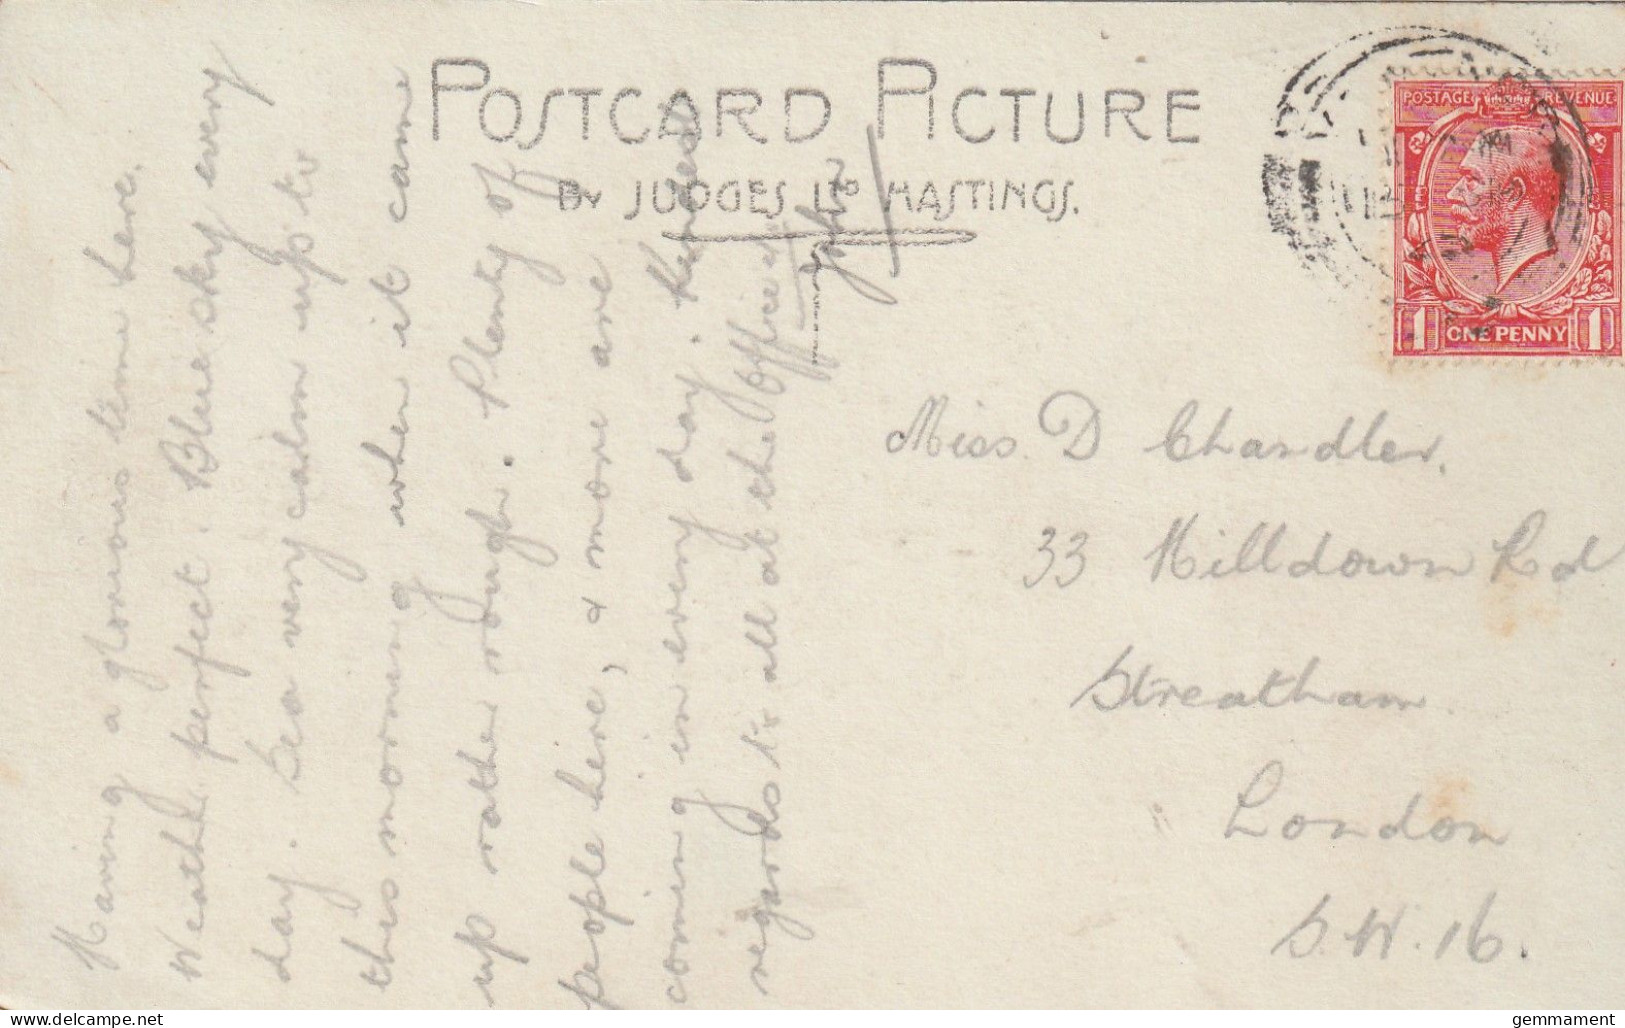 POSTCARD PICTURE
BY JUDGES LTD HASTINGS.
POSTAGE REVENUE
1 ONE PENNY 1
Having a glorious time here.
Weather perfect. Blue sky every
day. Sea very calm up to
this morning when it came
up rather rough. Plenty of
people here, & more are
coming in every day. Kindest
regards to all at the office
Miss D Chandler.
33 Hilldown Rd
Streatham
London
S.W.16.
gemmament